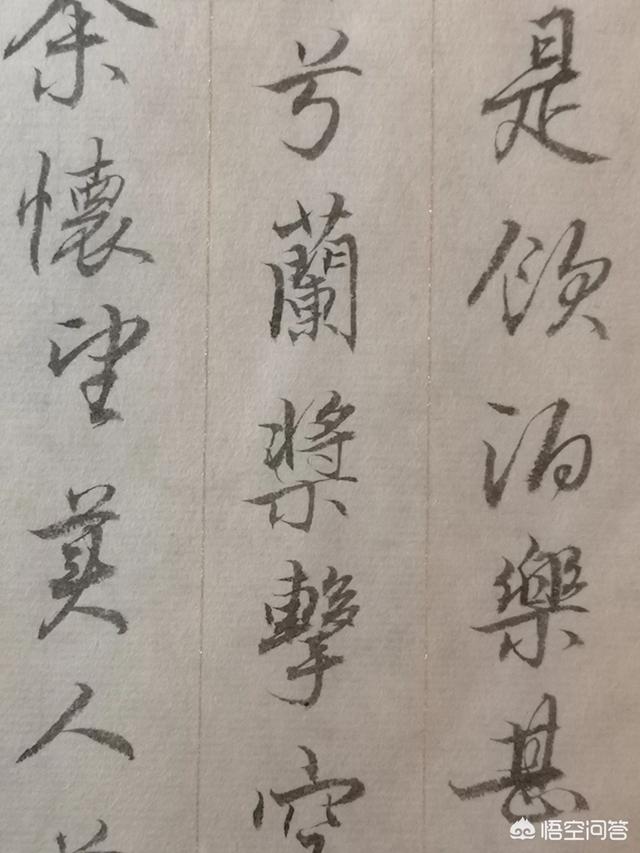 是飲酒樂甚
兮蘭槳擊空
余懷望美人
悟空问答